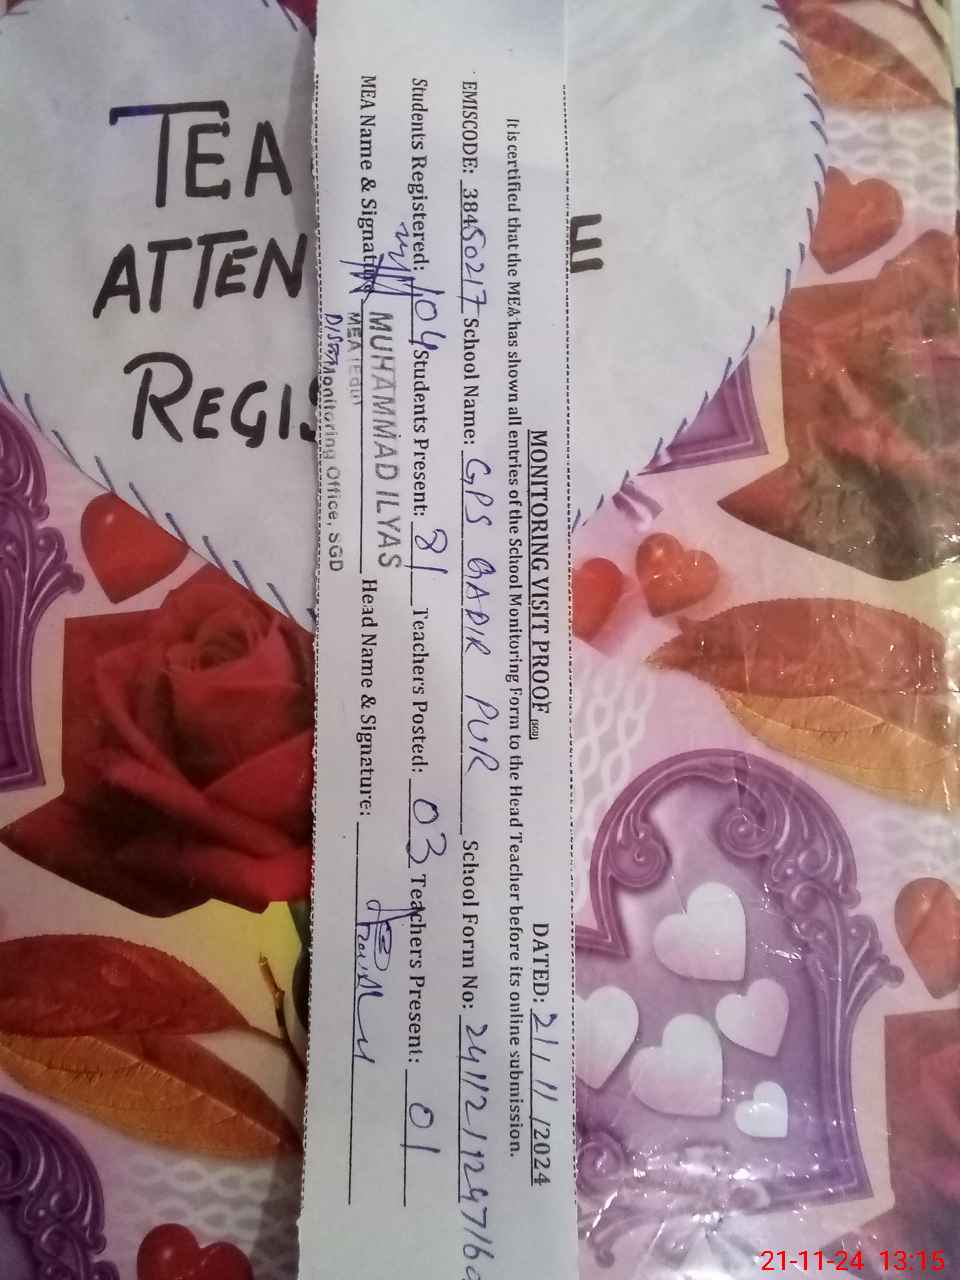 TEA
ATTEN
REGIS
E
MONITORING VISIT PROOF (SGD) DATED: 21/11/2024
It is certified that the MEA has shown all entries of the School Monitoring Form to the Head Teacher before its online submission.
EMISCODE: 38450217 School Name: GPS QADIR PUR School Form No:
Students Registered: 104 Students Present: 81 Teachers Posted: 03 Teachers Present: 01
MEA Name & Signature Head Name & Signature:
MUHAMMAD ILYAS
MEA (Edu)
Monitoring Office, SGD
21-11-24 13:15